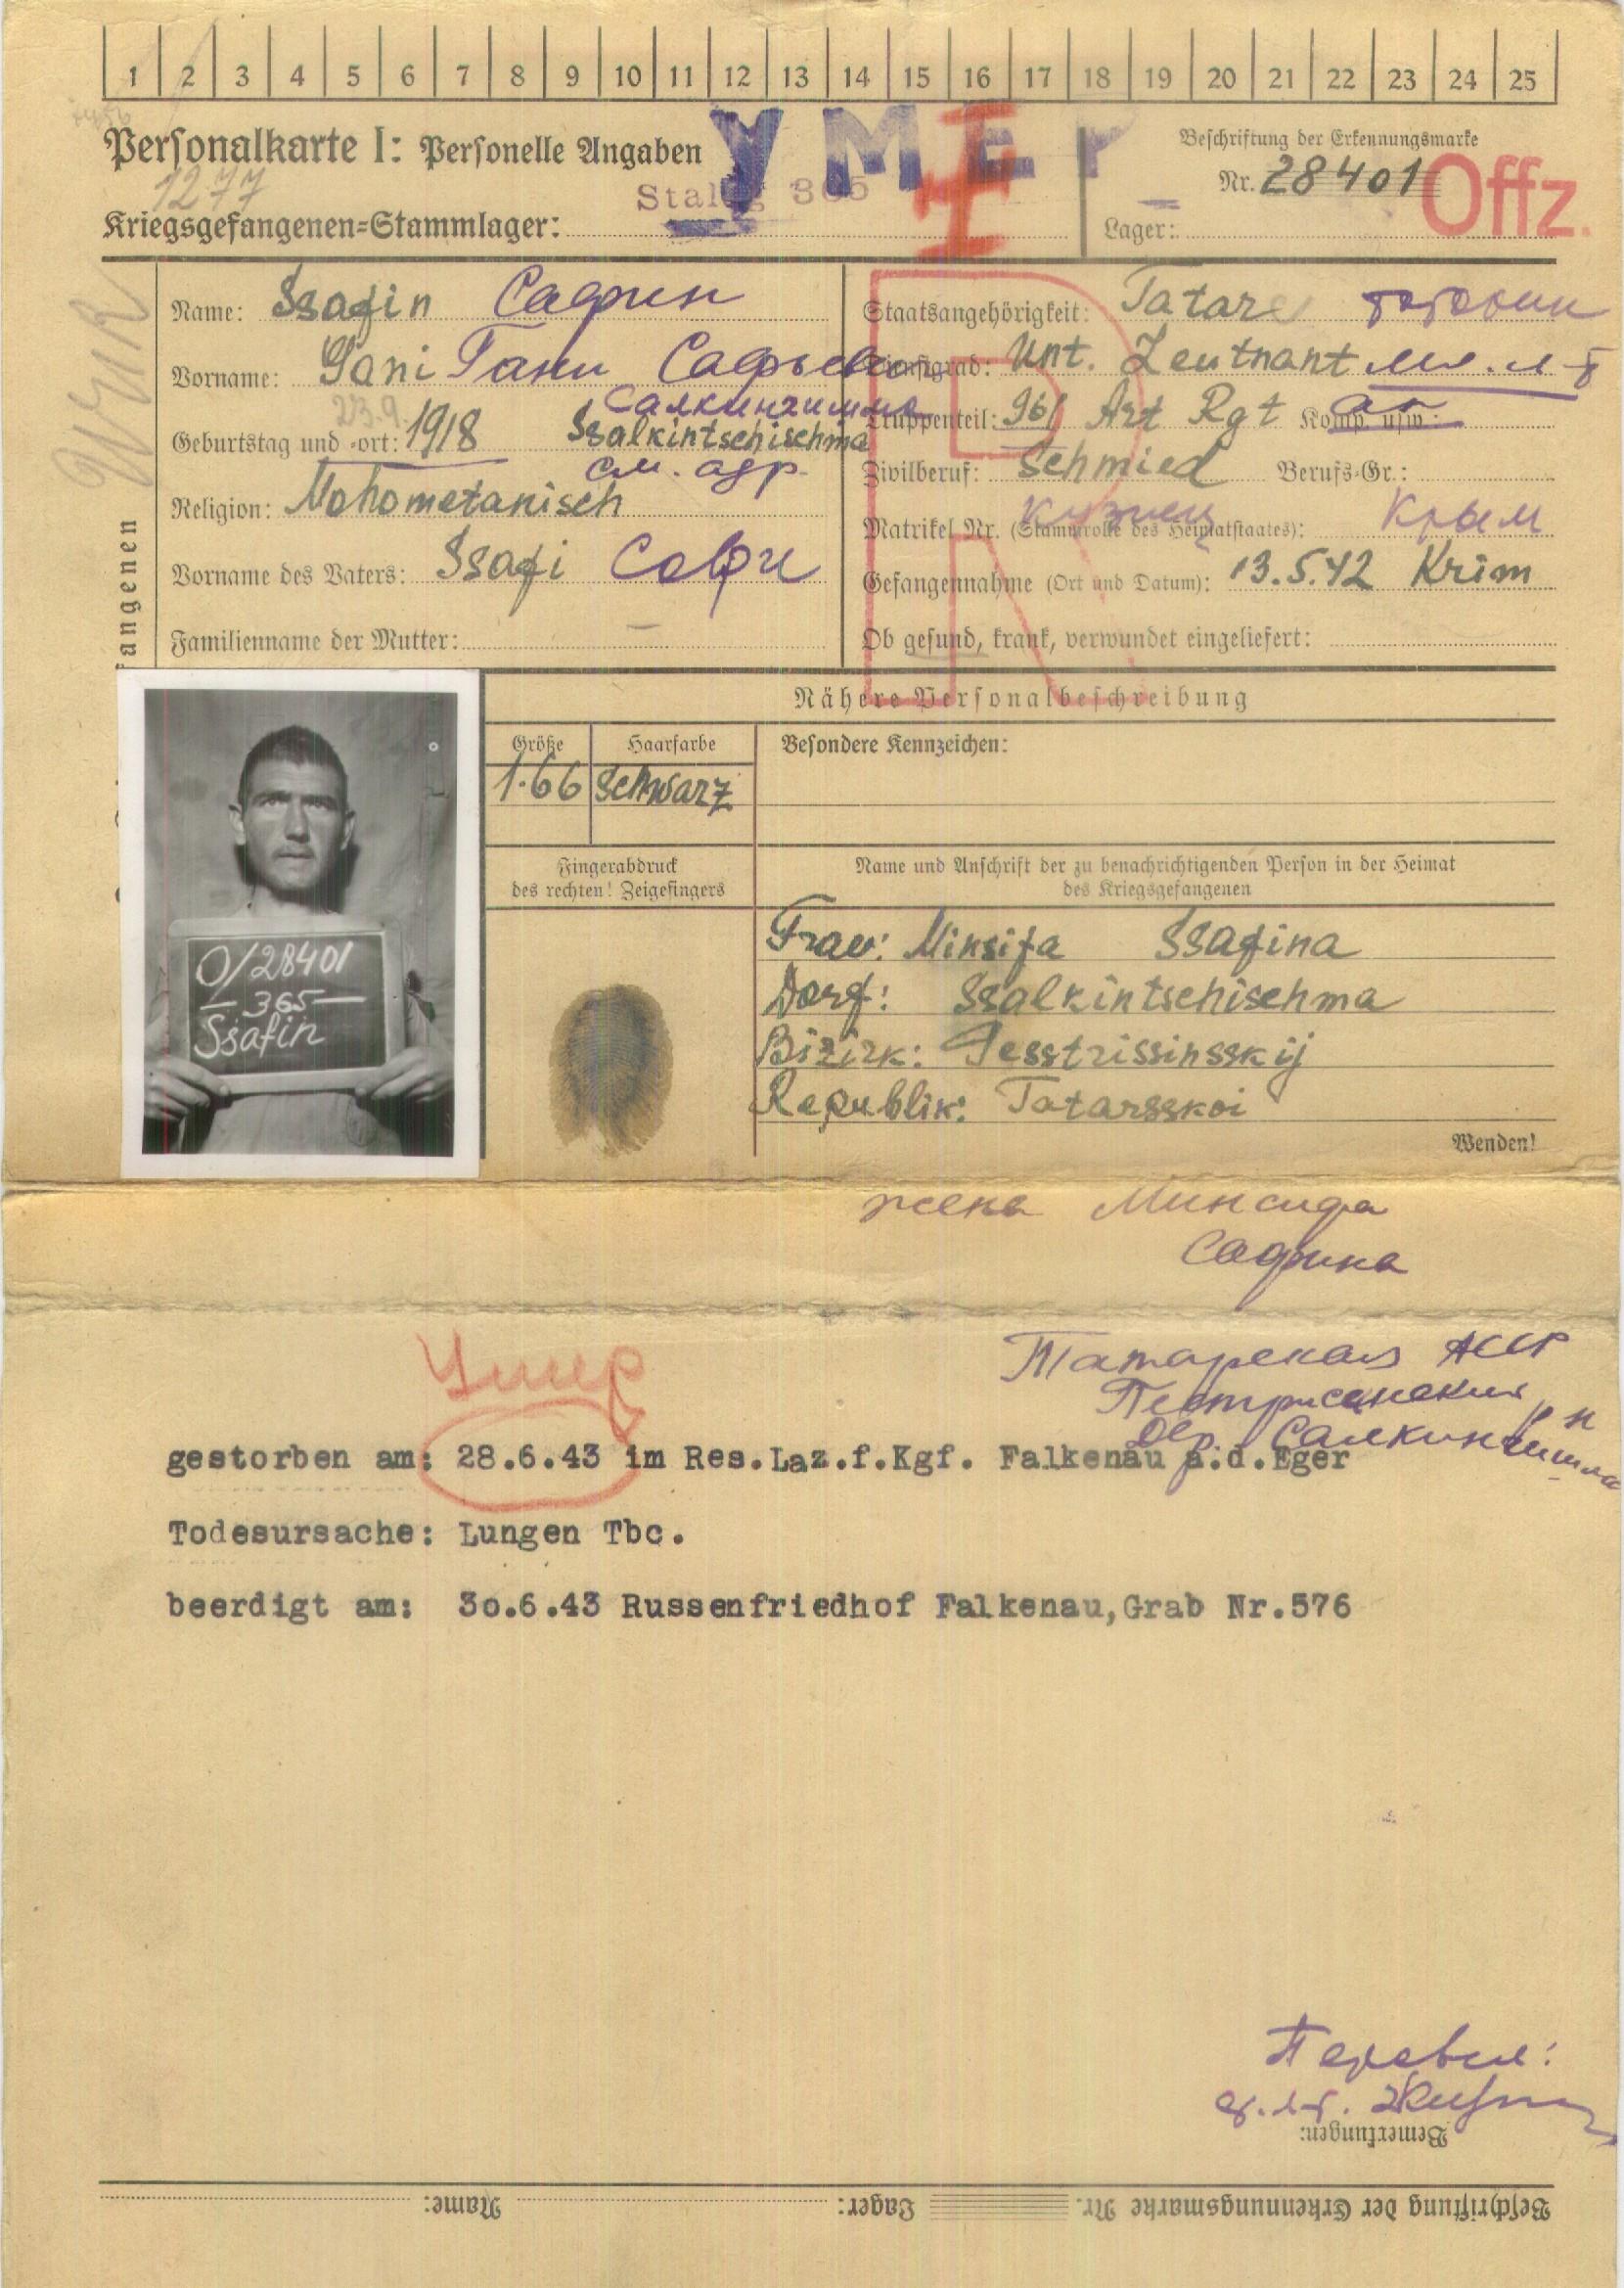 1 2 3 4 5 6 7 8 9 10 11 12 13 14 15 16 17 18 19 20 21 22 23 24 25
УМЕР
Personalkarte I: Personelle Angaben
I
Beschriftung der Erkennungsmarke
1277
Stalag 365
Nr. 28401 Offz.
Kriegsgefangenen=Stammlager:
Lager:
angenen
Name: Ssafin Сафин
Vorname: Gani Гани
23.9.
Салкинчишма
Geburtstag und -ort: 1918 Ssalkintschischma
см. адр.
Religion: Mohometanisch
Vorname des Vaters: Ssafi Сафи
Familienname der Mutter: —
R
Staatsangehörigkeit: Tatare татарин
Dienstgrad: Unt. Leutnant мл. л-т
Truppenteil: 961 Art Rgt Komp. usw.: ап
Zivilberuf: Schmied Berufs-Gr.:
кузнец Крым
Matrikel Nr. (Stammrolle des Heimatstaates):
Gefangennahme (Ort und Datum): 13.5.42 Krim
Ob gesund, krank, verwundet eingeliefert:
Nähere Personalbeschreibung
Größe Haarfarbe Besondere Kennzeichen:
1.66 Schwarz
Fingerabdruck
des rechten! Zeigefingers
Name und Anschrift der zu benachrichtigenden Person in der Heimat
des Kriegsgefangenen
O/28401
365
Ssafin
Frau: Minsifa Ssafina
Dorf: Ssalkintschischma
Bizirk: Pesstrissinsskij
Republik: Tatarsskoi
Wenden!
жена Минсифа
Сафина
Татарская АССР
Умер
Пестрисинский р-н
дер. Салкинчишма
gestorben am: 28.6.43 im Res.Laz.f.Kgf. Falkenau a.d.Eger
Todesursache: Lungen Tbc.
beerdigt am: 3o.6.43 Russenfriedhof Falkenau,Grab Nr.576
Перевел:
Bemerkungen:
Beschriftung der Erkennungsmarke Nr. Lager: Name: